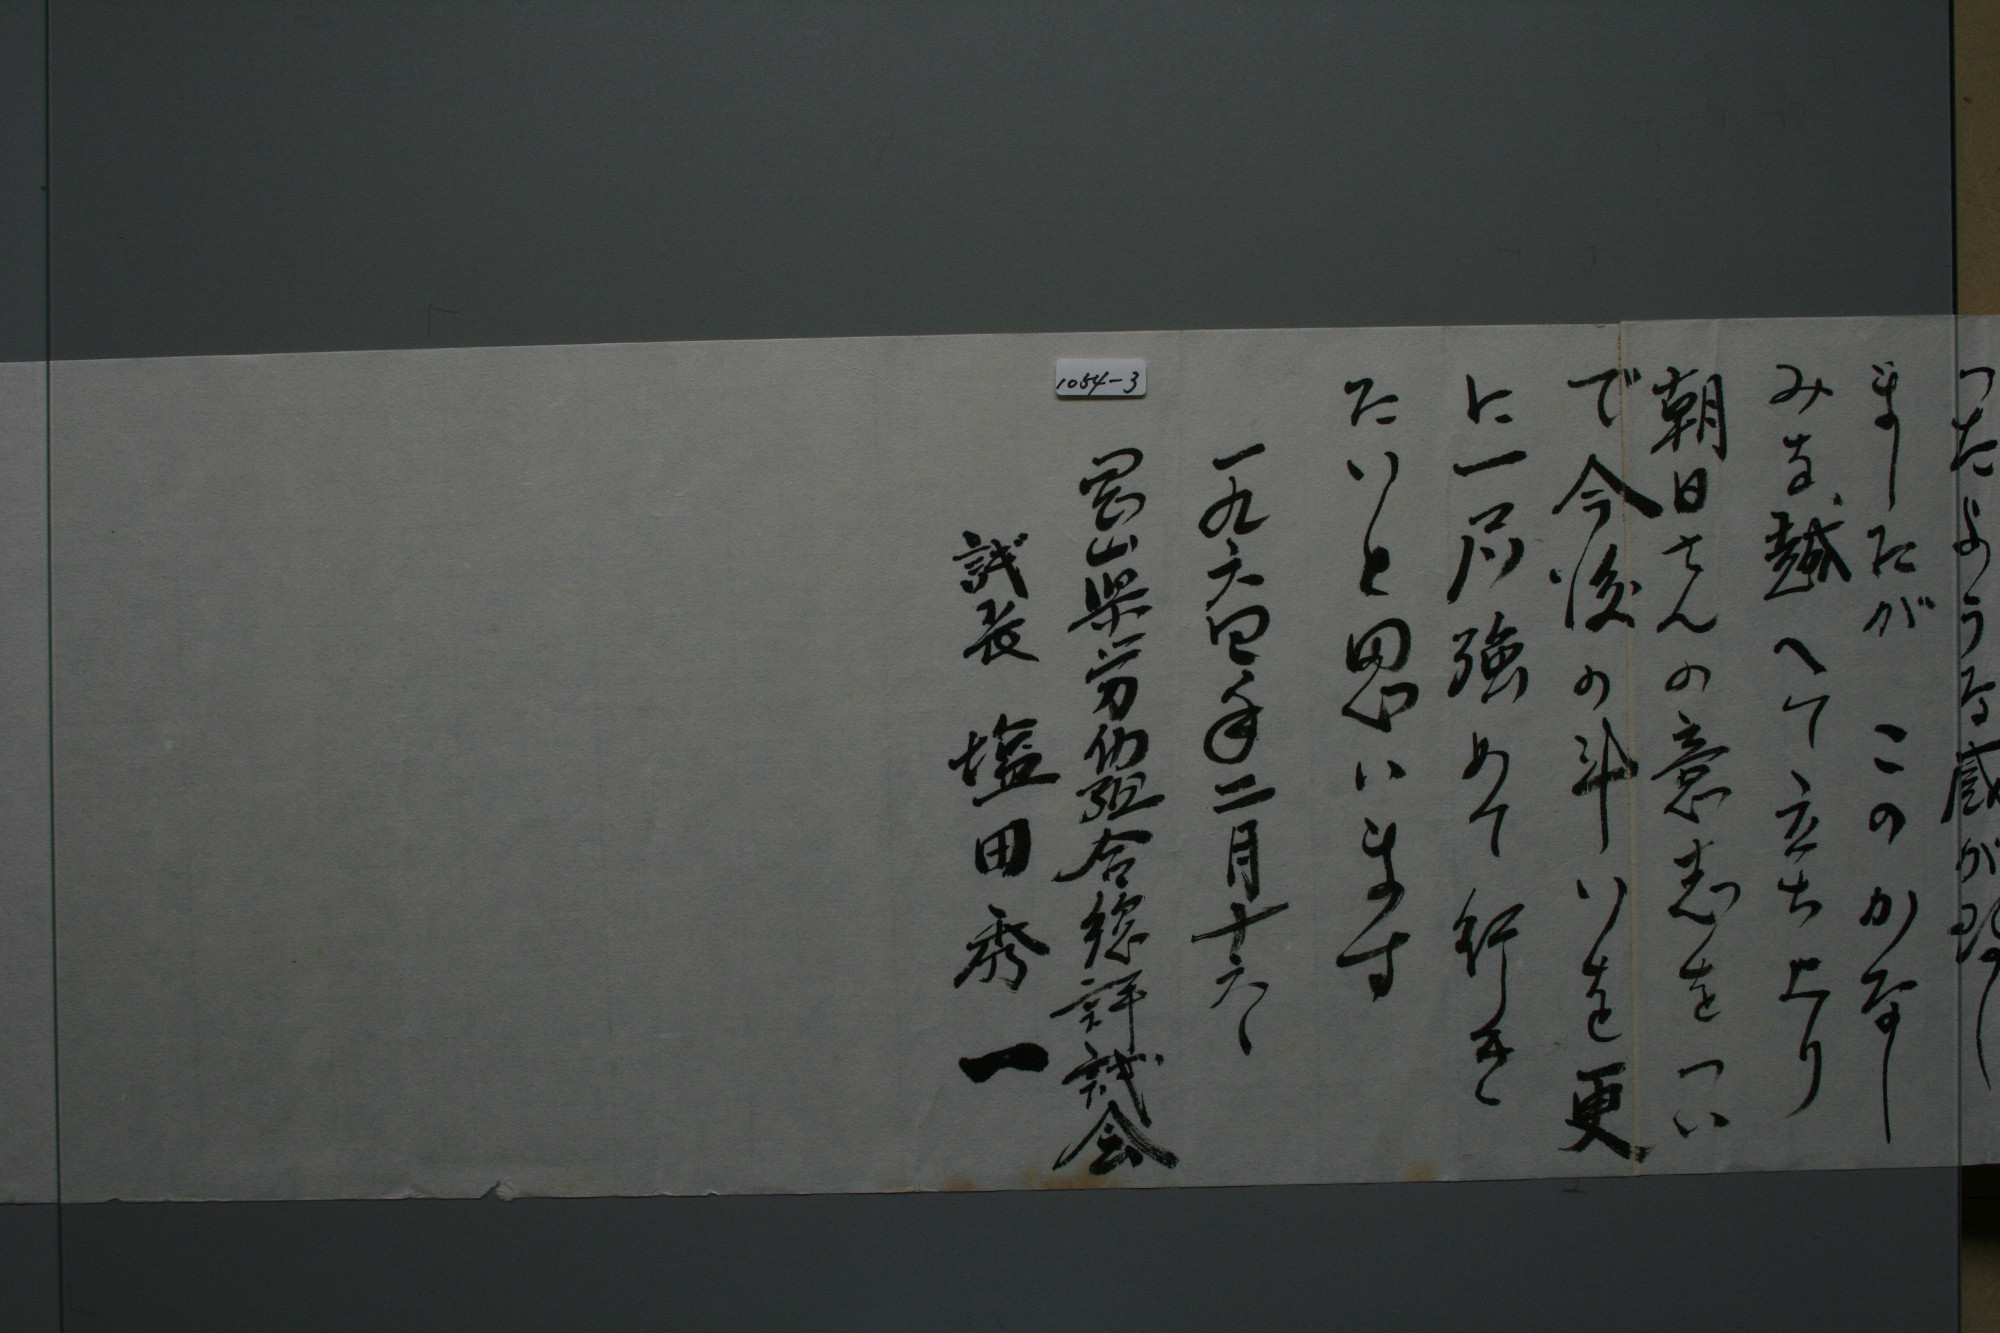 つたような感が致し
ましたが このかなし
みを越へて立ち上り
朝日さんの意志をつい
で今後の斗いを更
に一層強めて行き
たいと思います
一九六四年二月十六
岡山県労仂組合総評議会
議長 塩田秀一
1054-3